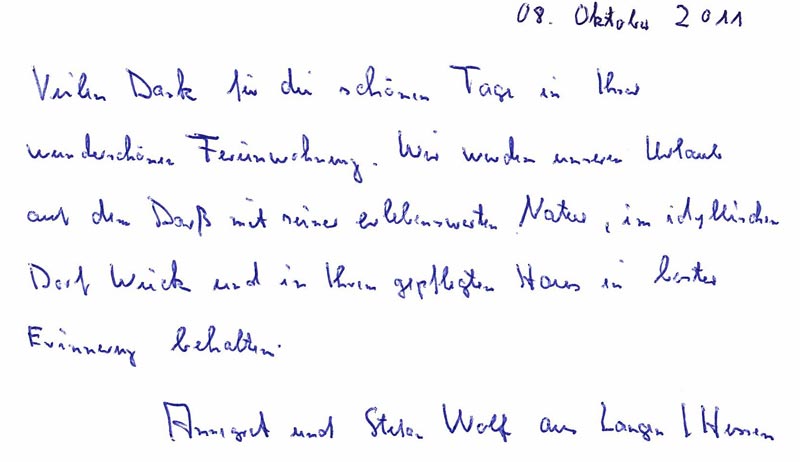 08. Oktober 2011
Vielen Dank für die schönen Tage in Ihrer
wunderschönen Ferienwohnung. Wir werden unseren Urlaub
auf dem Darß mit seiner erlebenswerten Natur, im idyllischen
Dorf Wieck und in Ihrem gepflegten Haus in bester
Erinnerung behalten.
Annegret und Stefan Wolf aus Langen / Hessen